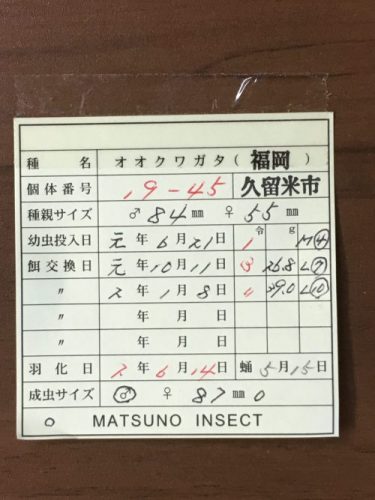 種名 オオクワガタ(福岡)
個体番号 19-45 久留米市
種親サイズ ♂84㎜ ♀55㎜
令 g
幼虫投入日 元年6月21日 1 M④
餌交換日 元年10月11日 3 26.8 L⑦
〃 2年1月8日 〃 L⑩
〃 年月日
〃 年月日
羽化日 2年6月14日 蛹5月15日
成虫サイズ ♂ ♀ 87㎜0
0 MATSUNO INSECT